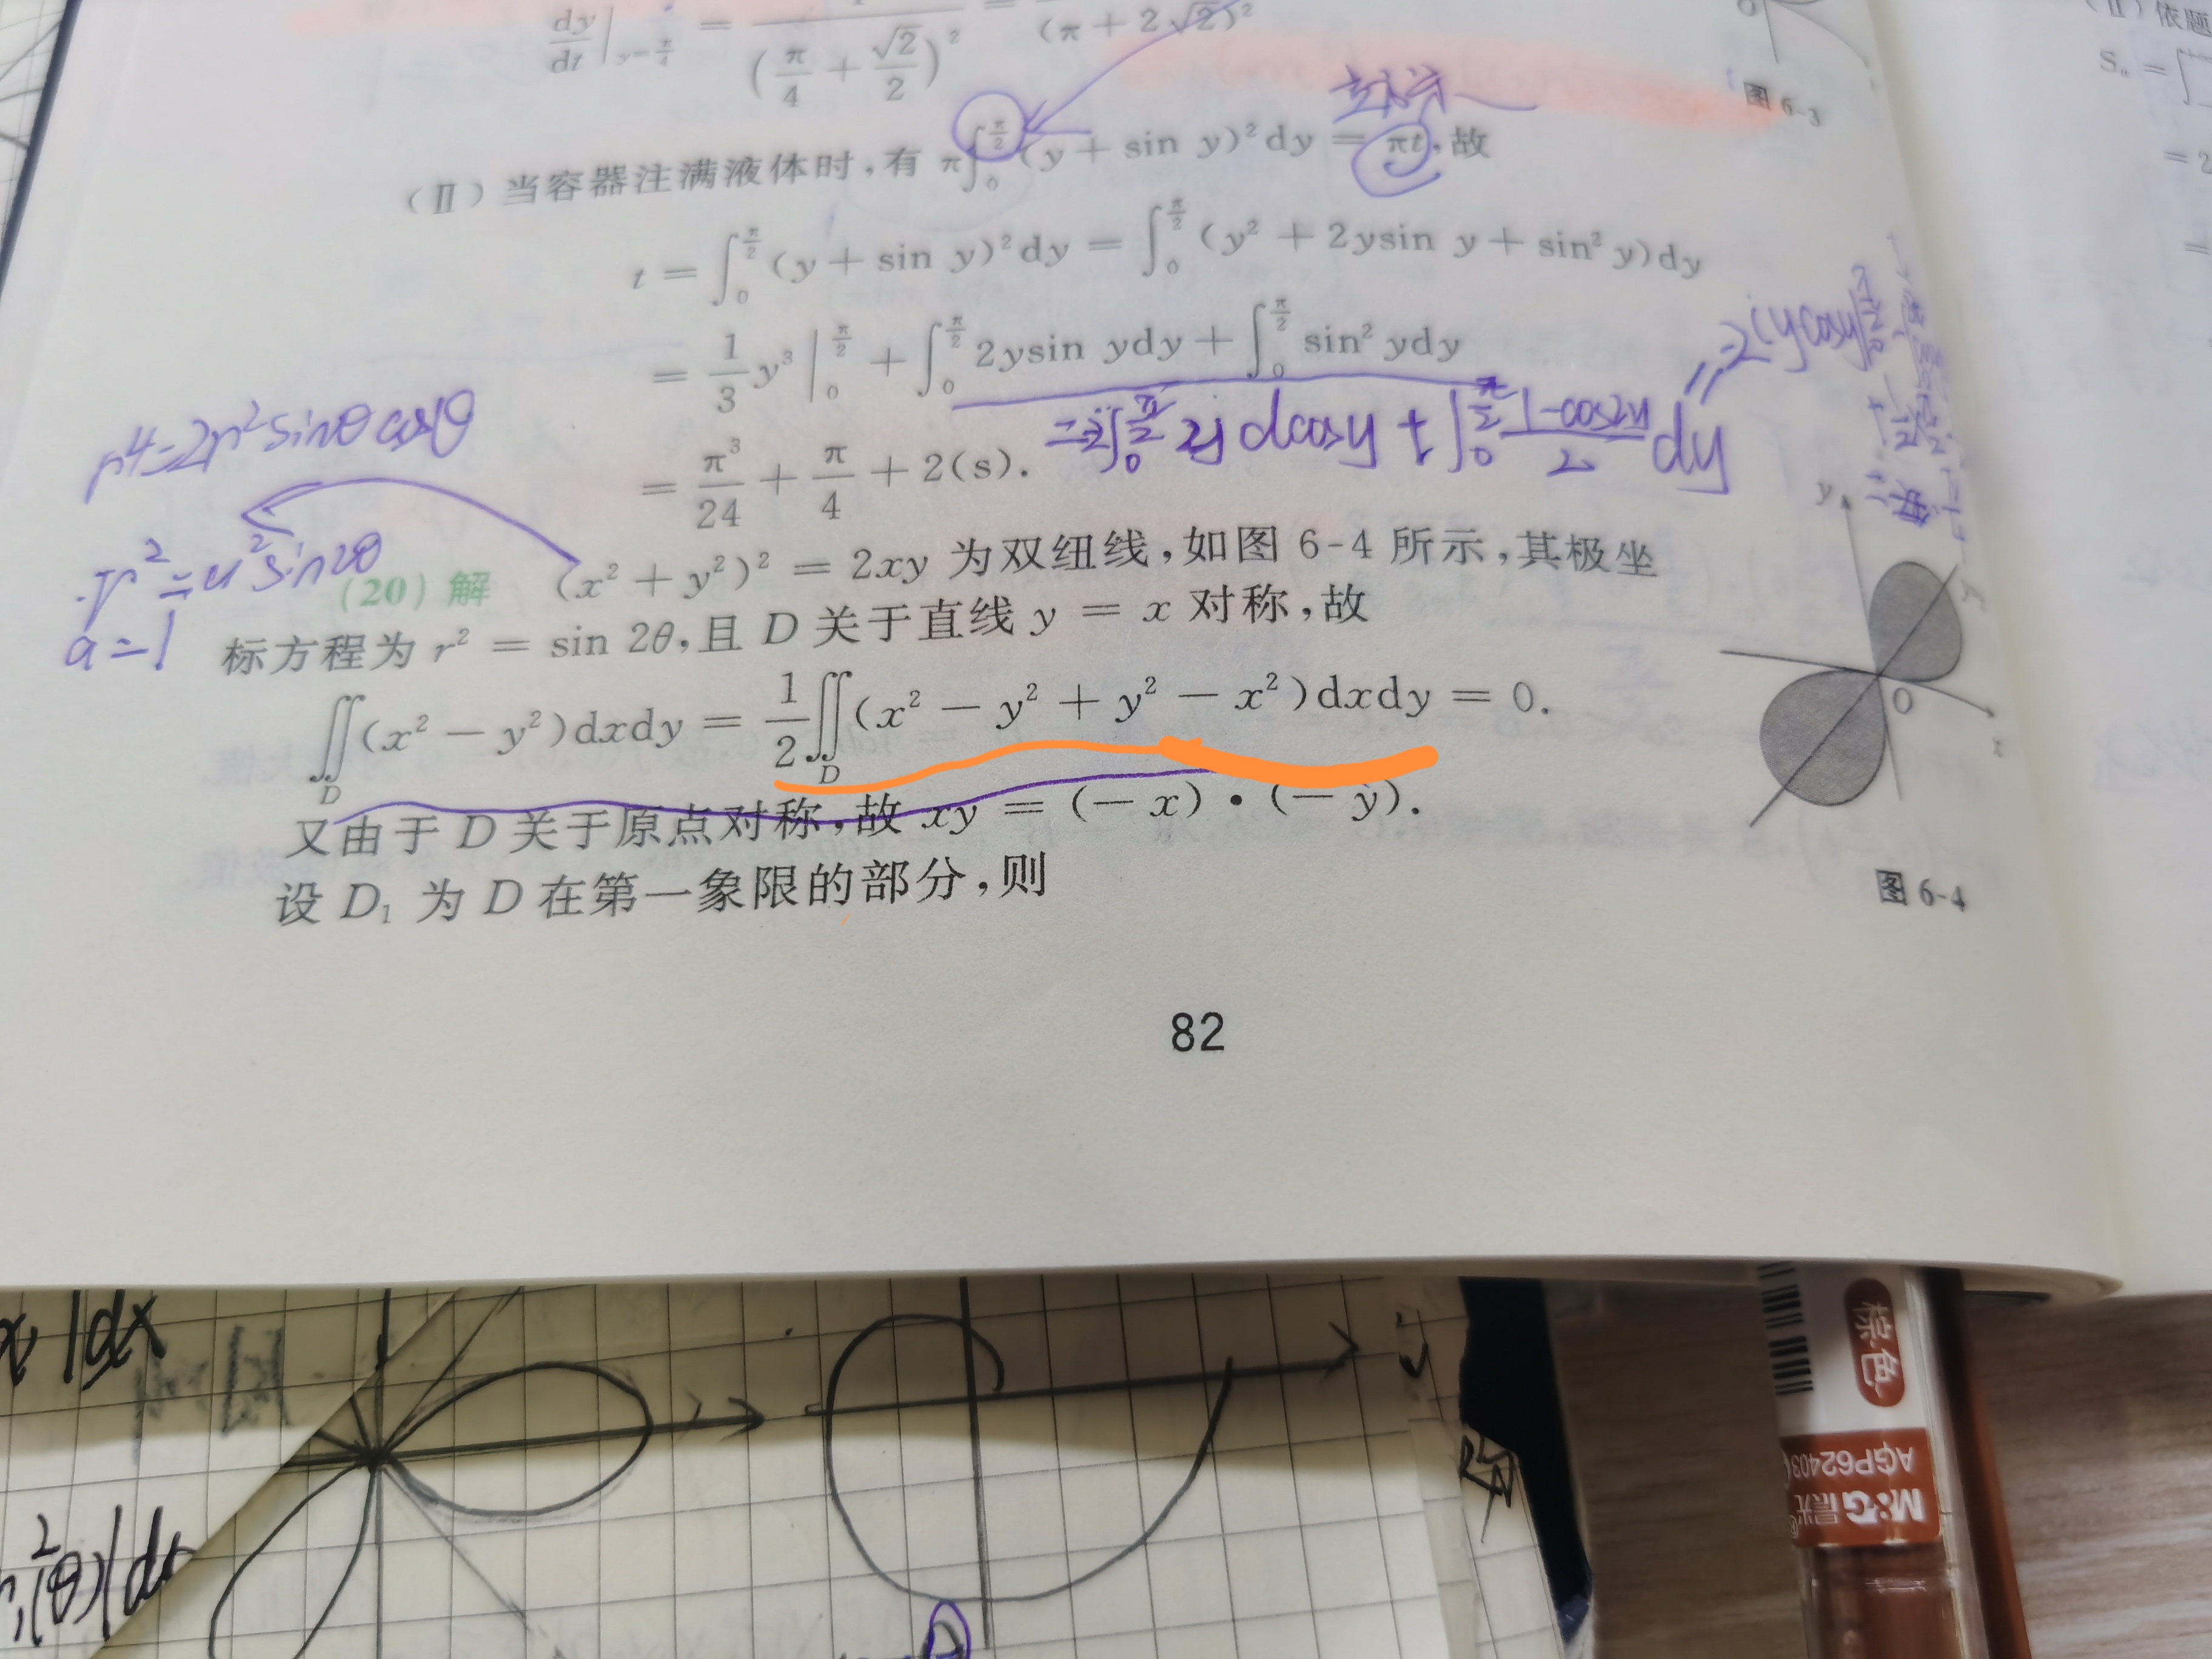 dy/dt|y=π/4 = 1/(π/4 + √2/2)² = (π + 2√2)²
(Ⅱ) 当容器注满液体时,有 π∫₀^{π/2} (y + sin y)² dy = πt,故
t = ∫₀^{π/2} (y + sin y)² dy = ∫₀^{π/2} (y² + 2ysin y + sin² y)dy
= 1/3 y³|₀^{π/2} + ∫₀^{π/2} 2ysin ydy + ∫₀^{π/2} sin² ydy
= π³/24 + π/4 + 2(s).
r⁴=2r²sinθcosθ
r²=a²sin2θ
a=1
(20) 解 (x² + y²)² = 2xy 为双纽线,如图 6-4 所示,其极坐
标方程为 r² = sin 2θ,且 D 关于直线 y = x 对称,故
∬_D (x² − y²)dxdy = 1/2 ∬_D (x² − y² + y² − x²)dxdy = 0.
又由于 D 关于原点对称,故 xy = (− x) • (− y).
设 D₁ 为 D 在第一象限的部分,则
82
y
O
x
图 6-4
图 6-3
(Ⅱ) 依题
Sₙ =
= 2
=
|dx
棕色
AGP62403
M&G晨光